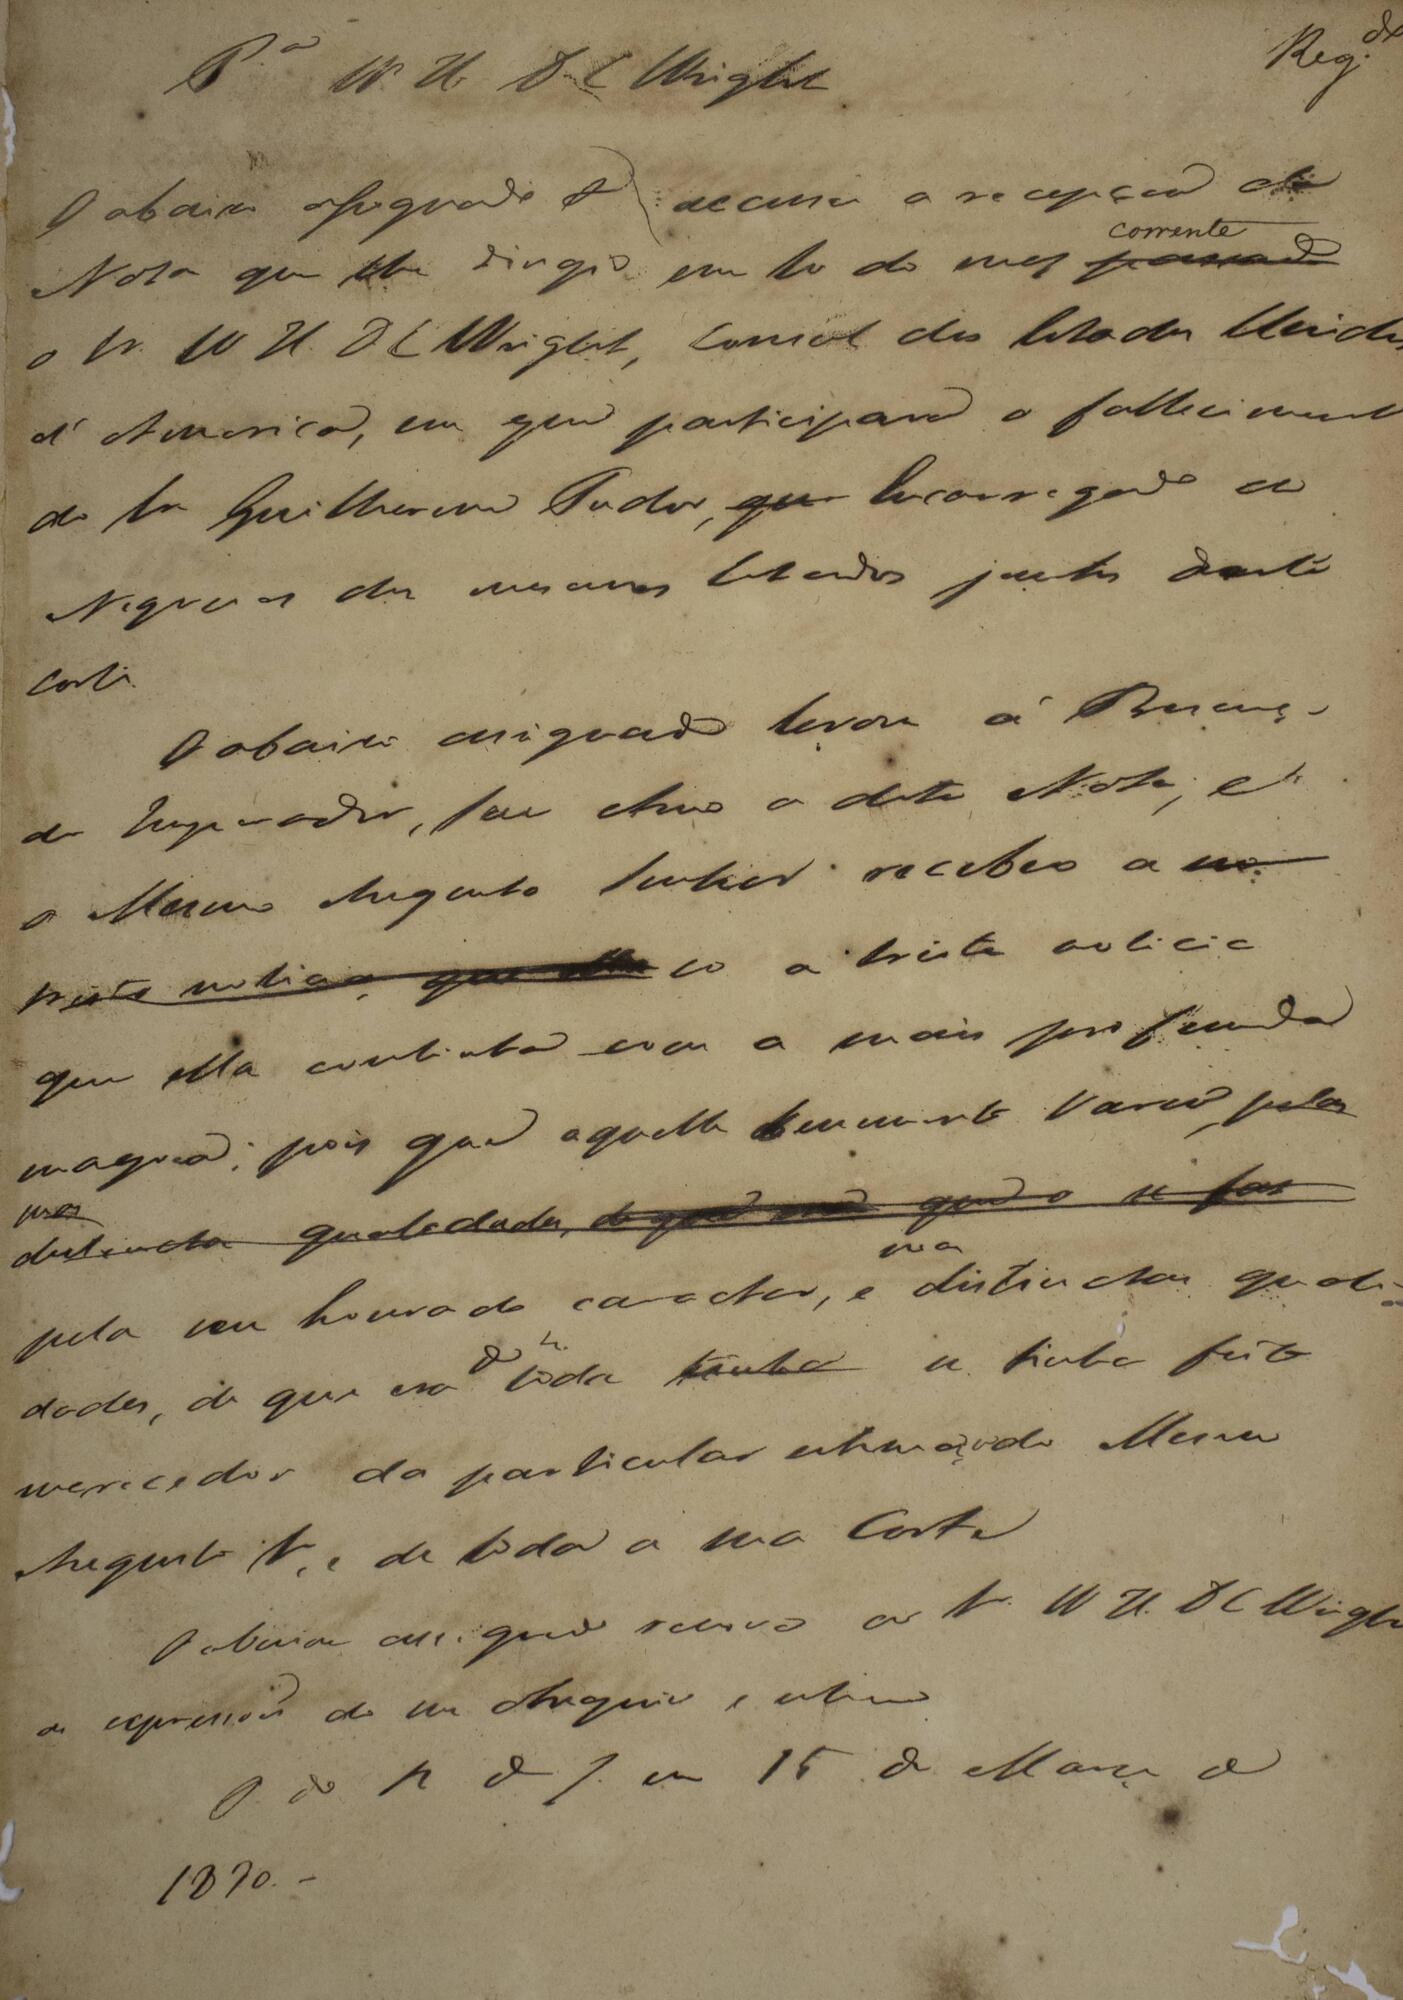 Regdo
Pa W. H. D. C. Wright
O abaixo assignado &) accusa a recepção da
corrente
Nota que lhe dirigio em 10 do mez passado
o Sr. W. H. D. C. Wright, Consul dos Estados Unidos
d'America, em que participava o fallecimento
do Sr Guilherme Tudor, que Encarregado de
Negocios dos mesmos Estados junto desta
Corte.
O abaixo assignado levou á Presença
do Imperador, seu Amo a dita Nota, e
o Mesmo Augusto Senhor recebeo a
triste noticia, que ella a triste noticia
que ella continha com a mais profunda
magoa; pois que aquelle benemerito Varão, pelas
suas
distinctas qualidades, de que não que o se fas
sua
pelo seu honrado caracter, e distinctas quali-
dades, de que era dotado tinha se tinha feito
merecedor da particular estimação do Mesmo
Augusto Sr, e de toda a sua Corte
O abaixo assignado renova ao Sr. W. H. D. C. Wright
as expressões do seu obsequio e estima
P. do R. de J. em 15 de Março de
1830.-